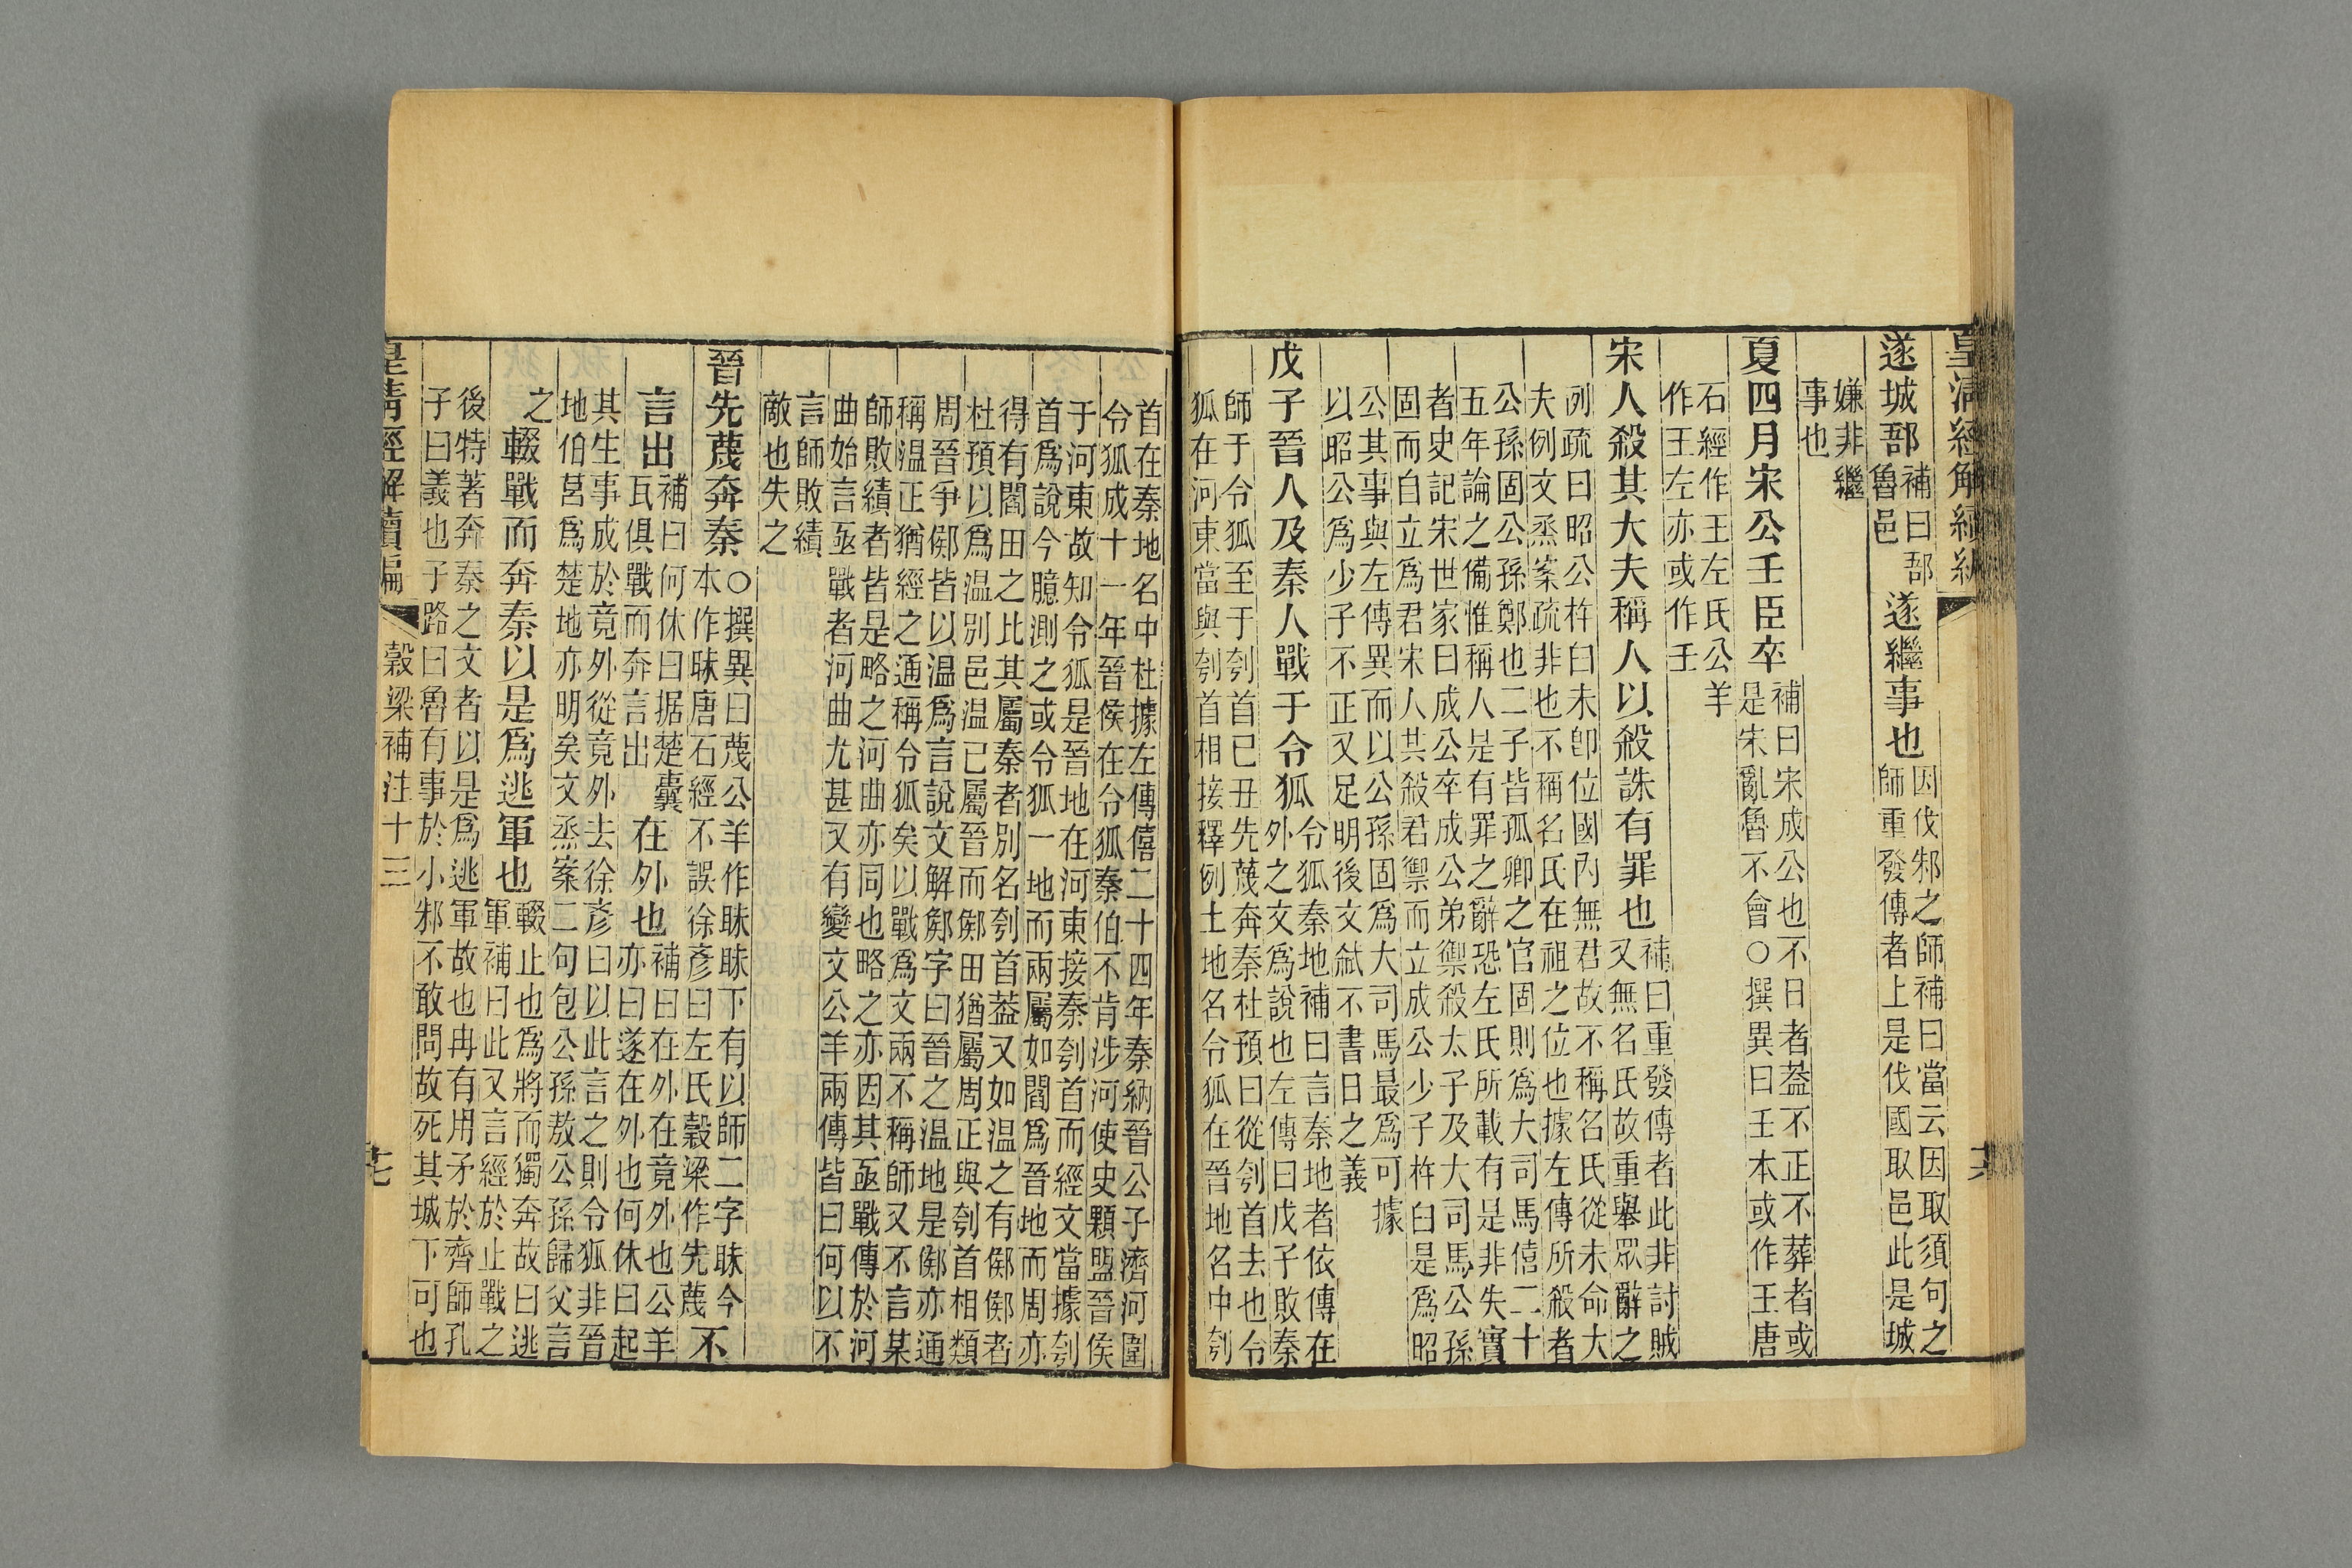 皇清經解續編
遂城郚補曰郚
魯邑
遂繼事也因伐邾之師補曰當云因取須句之
師重發傳者上是伐國取邑此是城
嫌非繼
事也
夏四月宋公壬臣卒補曰宋成公也不日者葢不正不葬者或
是宋亂魯不會○撰異曰壬本或作王唐
石經作王左氏公羊
作王左亦或作壬
宋人殺其大夫稱人以殺誅有罪也補曰重發傳者此非討賊
又無名氏故重舉眾辭之
例疏曰昭公杵臼未卽位國內無君故不稱名氏從未命大
夫例文烝案疏非也不稱名氏在祖之位也據左傳所殺者
公孫固公孫鄭也二子皆孤卿之官固則爲大司馬僖二十
五年論之備惟稱人是有罪之辭恐左氏所載有是非失實
者史記宋世家曰成公卒成公弟禦殺太子及大司馬公孫
固而自立爲君宋人共殺君禦而立成公少子杵臼是爲昭
公其事與左傳異而以公孫固爲大司馬最爲可據
以昭公爲少子不正又足明後文弑不書日之義
戊子晉人及秦人戰于令狐令狐秦地補曰言秦地者依傳在
外之文爲說也左傳曰戊子敗秦
師于令狐至于刳首己丑先蔑奔秦杜預曰從刳首去也令
狐在河東當與刳首相接釋例土地名令狐在晉地名中刳
首在秦地名中杜據左傳僖二十四年秦納晉公子濟河圍
令狐成十一年晉侯在令狐秦伯不肯涉河使史顆盟晉侯
于河東故知令狐是晉地在河東接秦刳首而經文當據刳
首爲說今臆測之或令狐一地而兩屬如閻爲晉地而周亦
得有閻田之比其屬秦者別名刳首葢又如温之有鄇鄇者
杜預以爲温別邑温已屬晉而鄇田猶屬周正與刳首相類
周晉爭鄇皆以温爲言說文解鄇字曰晉之温地是鄇亦通
稱温正猶經之通稱令狐矣以戰爲文兩不稱師又不言某
師敗績者皆是略之河曲亦同也略之亦因其亟戰傳於河
曲始言亟戰者河曲尤甚又有變文公羊兩傳皆曰何以不
言師敗績
敵也失之
晉先蔑奔秦○撰異曰蔑公羊作眜眜下有以師二字眜今
本作昧唐石經不誤徐彥曰左氏穀梁作先蔑
不
言出補曰何休曰据楚囊
瓦俱戰而奔言出
在外也補曰在外在竟外也公羊
亦曰遂在外也何休曰起
其生事成於竟外從竟外去徐彥曰以此言之則令狐非晉
地伯莒爲楚地亦明矣文烝案二句包公孫敖公孫歸父言
之
輟戰而奔秦以是爲逃軍也輟止也爲將而獨奔故曰逃
軍補曰此又言經於止戰之
後特著奔秦之文者以是爲逃軍故也冉有用矛於齊師孔
子曰義也子路曰魯有事於小邾不敢問故死其城下可也
皇清經解續編
穀梁補注十三